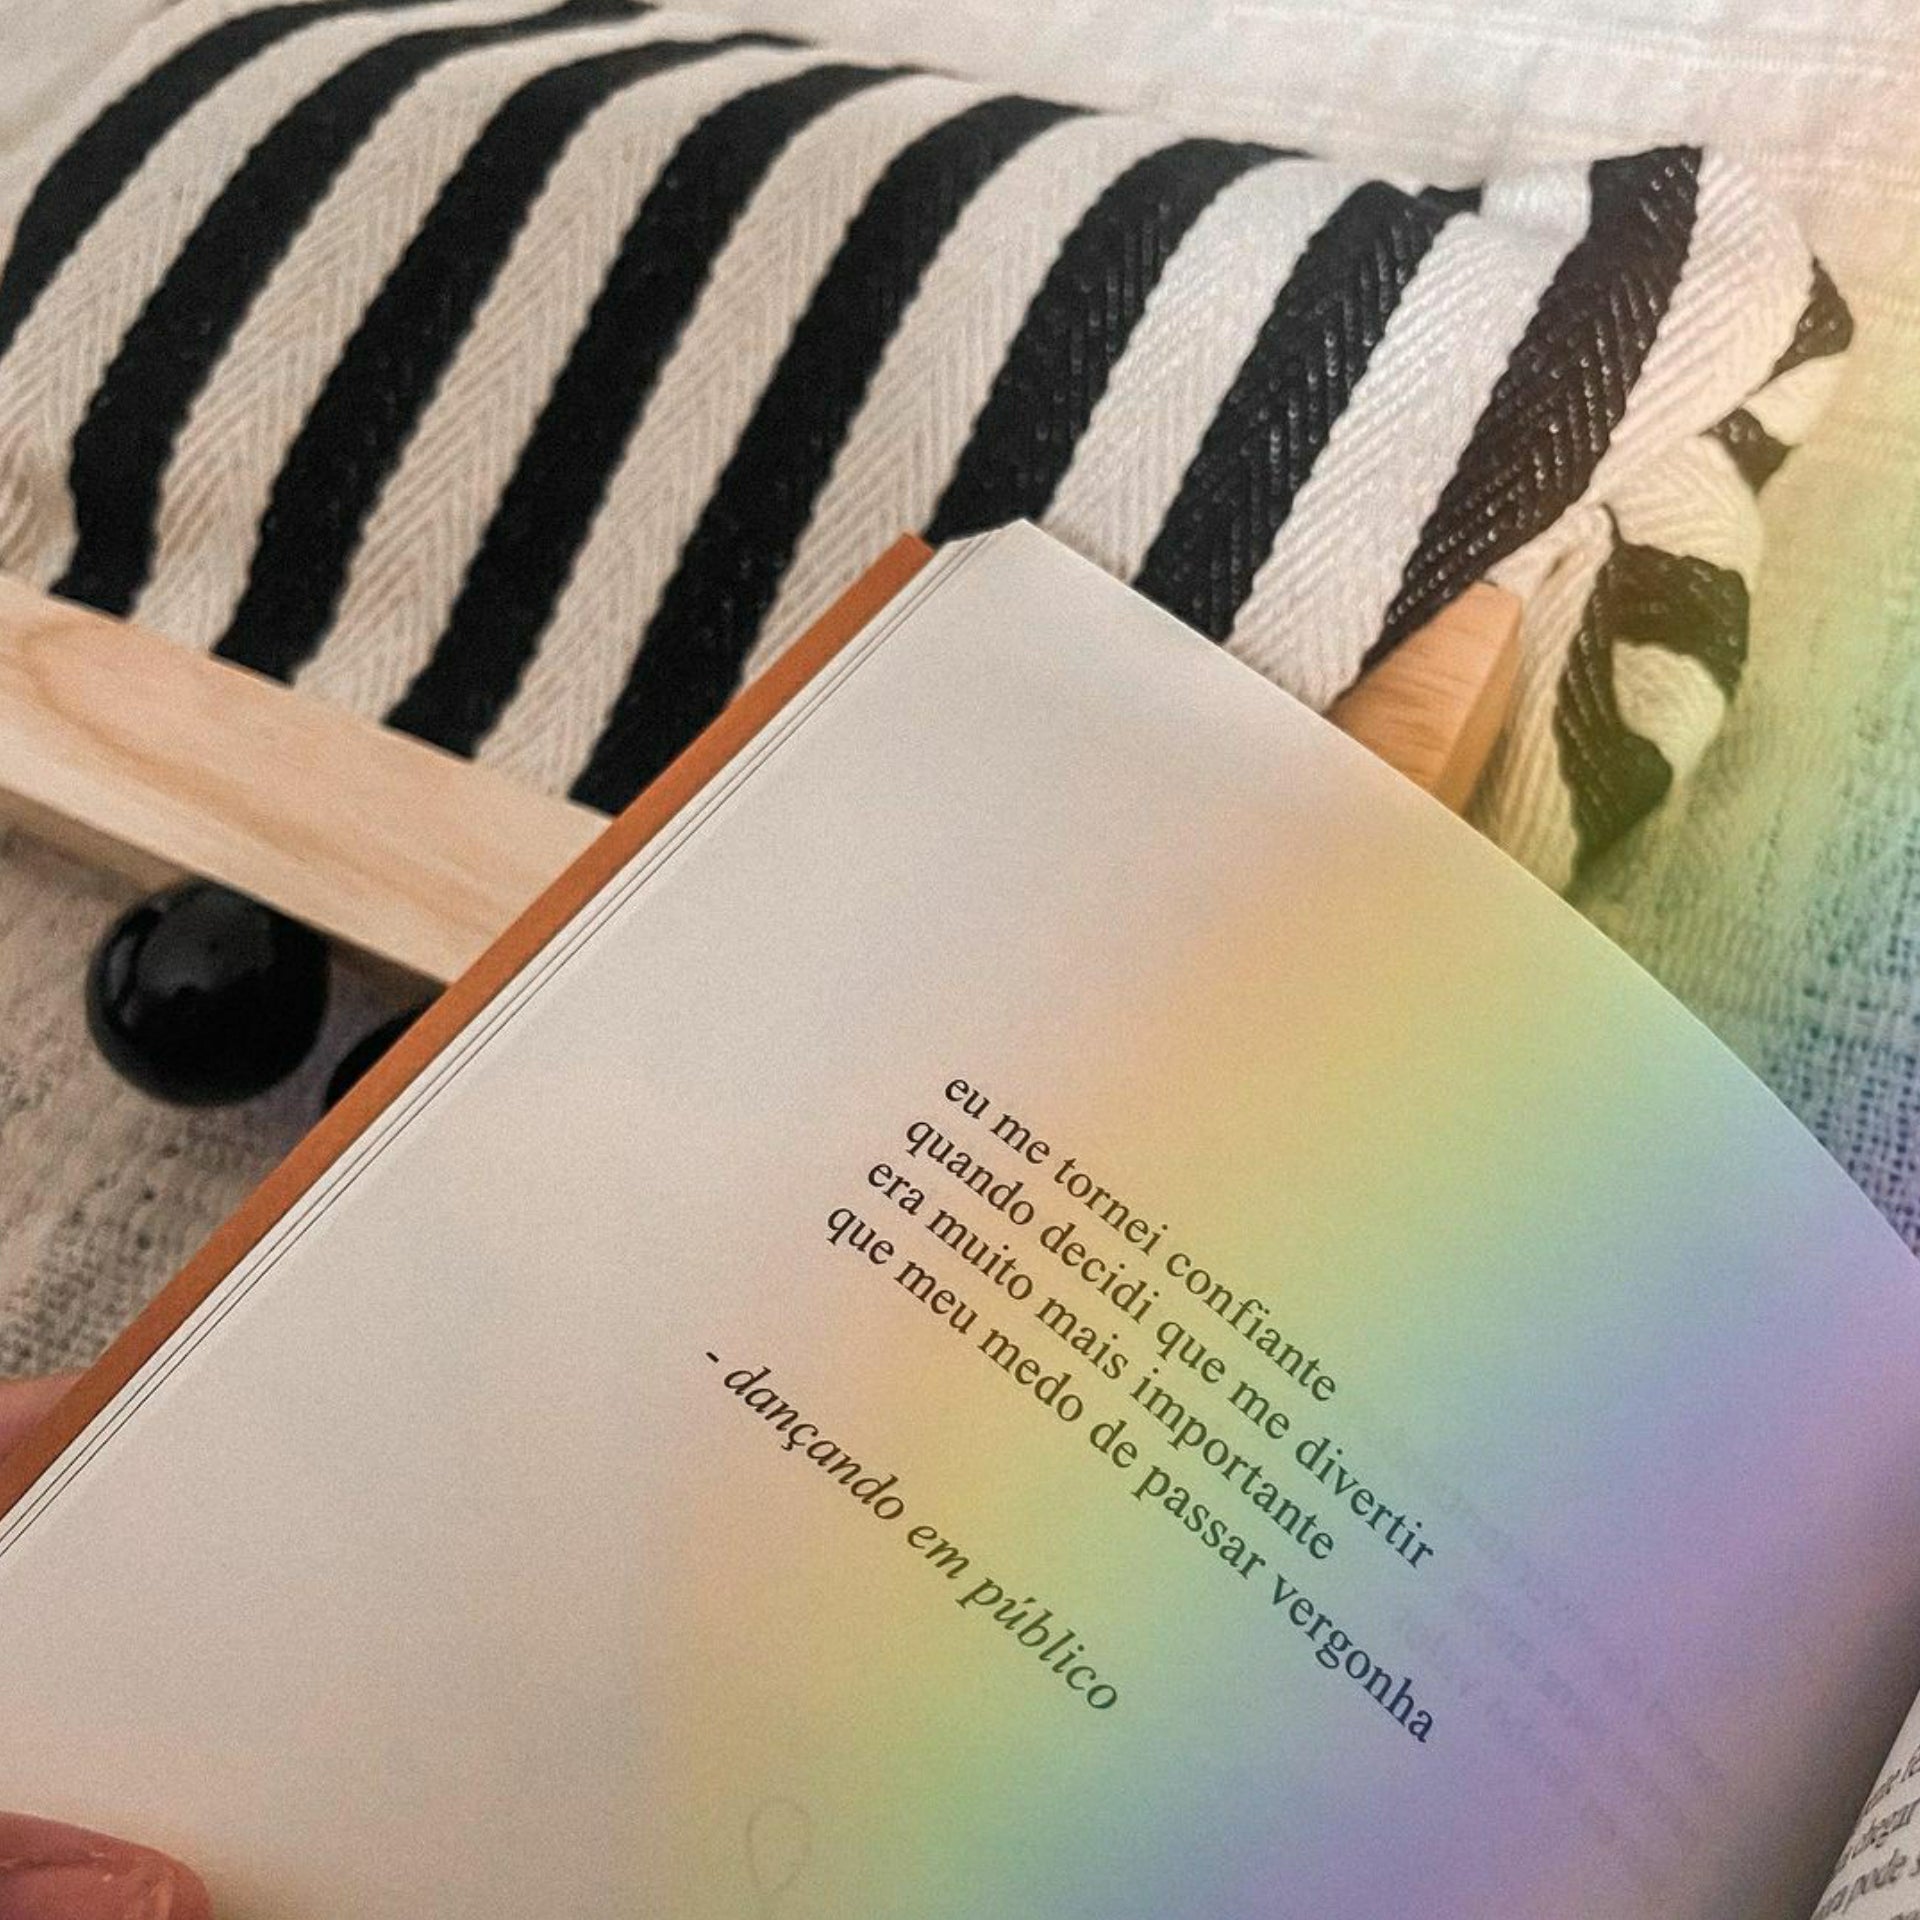 eu me tornei confiante
quando decidi que me divertir
era muito mais importante
que meu medo de passar vergonha
- dançando em público
chegar
pode